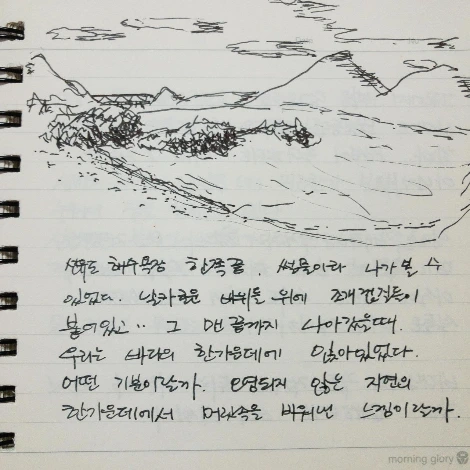 선유도 해수욕장 한쪽끝. 썰물이라 나가볼 수
있었다. 날카로운 바위들 위에 조개껍질들이
붙어있고.. 그 맨 끝까지 나아갔을때.
우리는 바다의 한가운데에 있어왔었다.
어떤 기분이랄까. 오염되지 않은 자연의
한가운데에서 머릿속을 비워낸 느낌이랄까.
morning glory